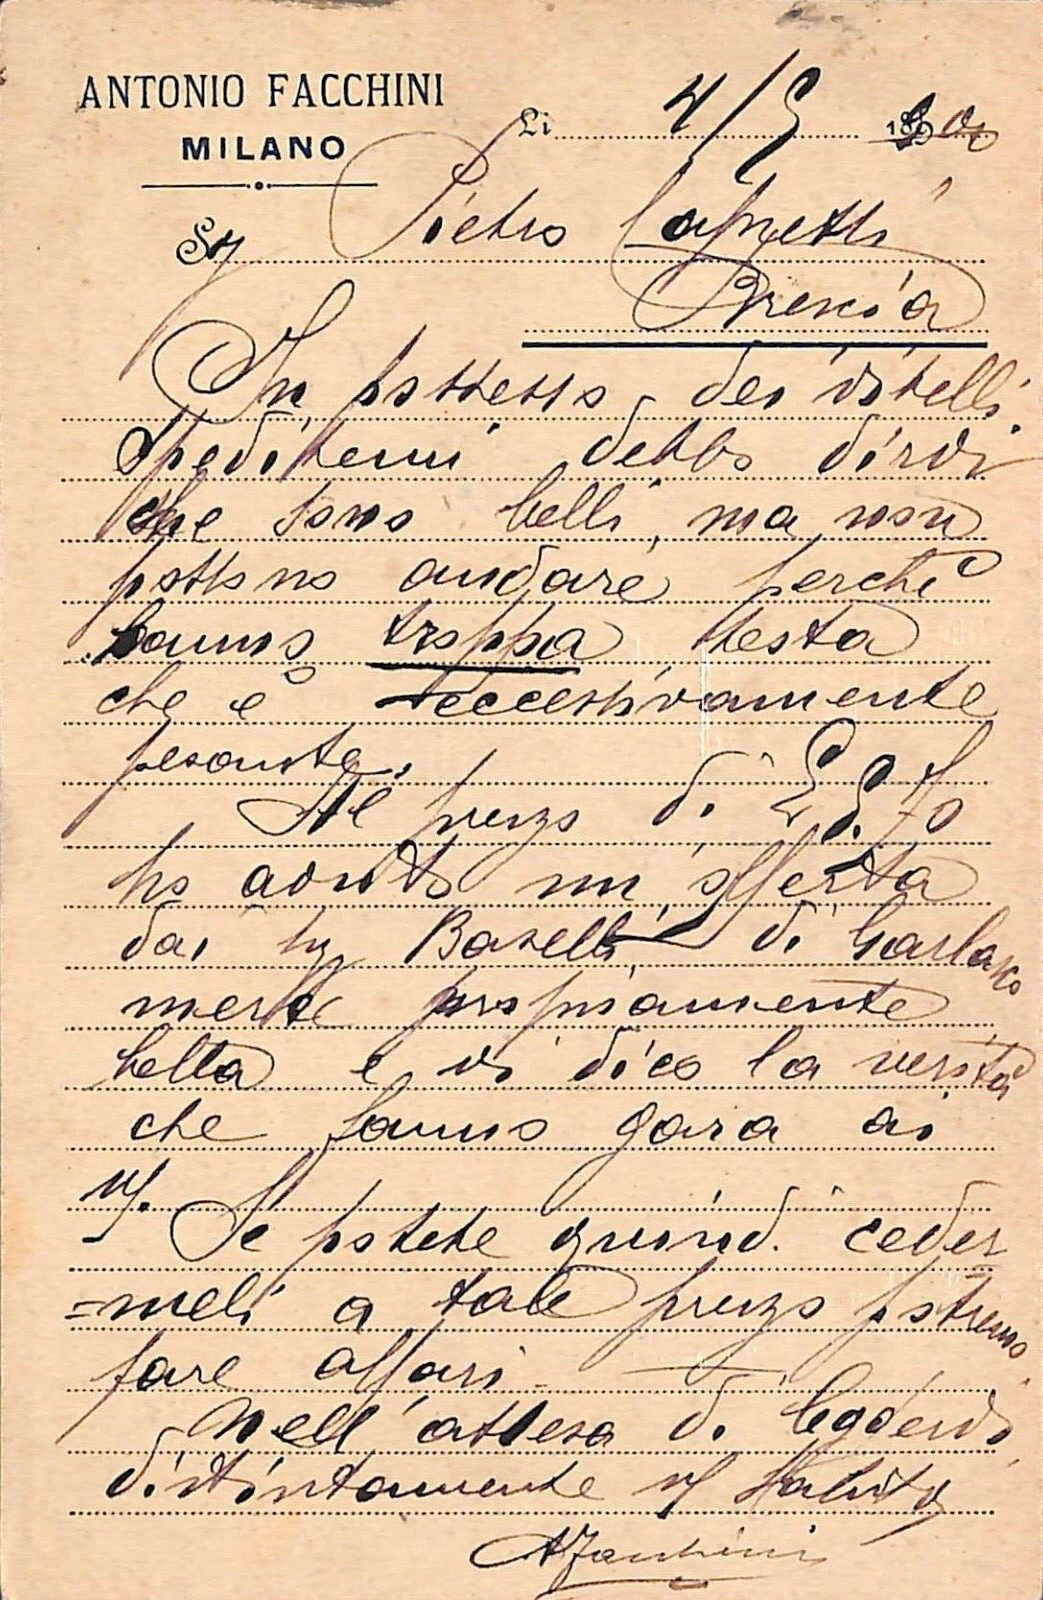 ANTONIO FACCHINI
MILANO
Li 4/5 1900
Sg Pietro Capretti
Brescia
In possesso dei vitelli
speditemi debbo dirvi
che sono belli, ma non
possono andare perchè
hanno troppa testa
che è eccessivamente
pesante.
Al prezzo di £ 5.70
ho avuto un'offerta
dai Sig Baselli di
merce propriamente
bella e vi dico la verità
che fanno gara ai
v/.
Se potete quindi ceder
=meli a tale prezzo potremo
fare affari
Nell'attesa di leggervi
distintamente v/ saluto
AFacchini